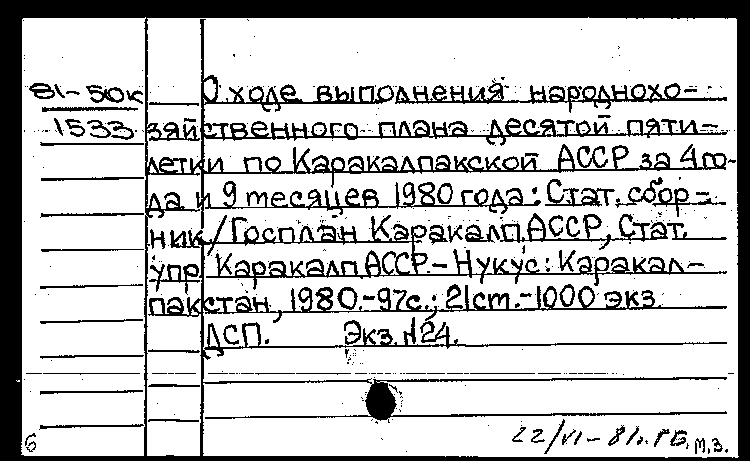 81-50к
1533
О ходе выполнения народнохо-
зяйственного плана десятой пяти-
летки по Каракалпакской АССР за 4 го-
да и 9 месяцев 1980 года: Стат. сбор-
ник/Госплан Каракалп.АССР, Стат.
упр. Каракалп.АССР.-Нукус: Каракал-
пакстан, 1980.-97с.; 21см.-1000 экз.
ДСП. Экз. №24.
6
22/VI-81г. ГБ. м.з.